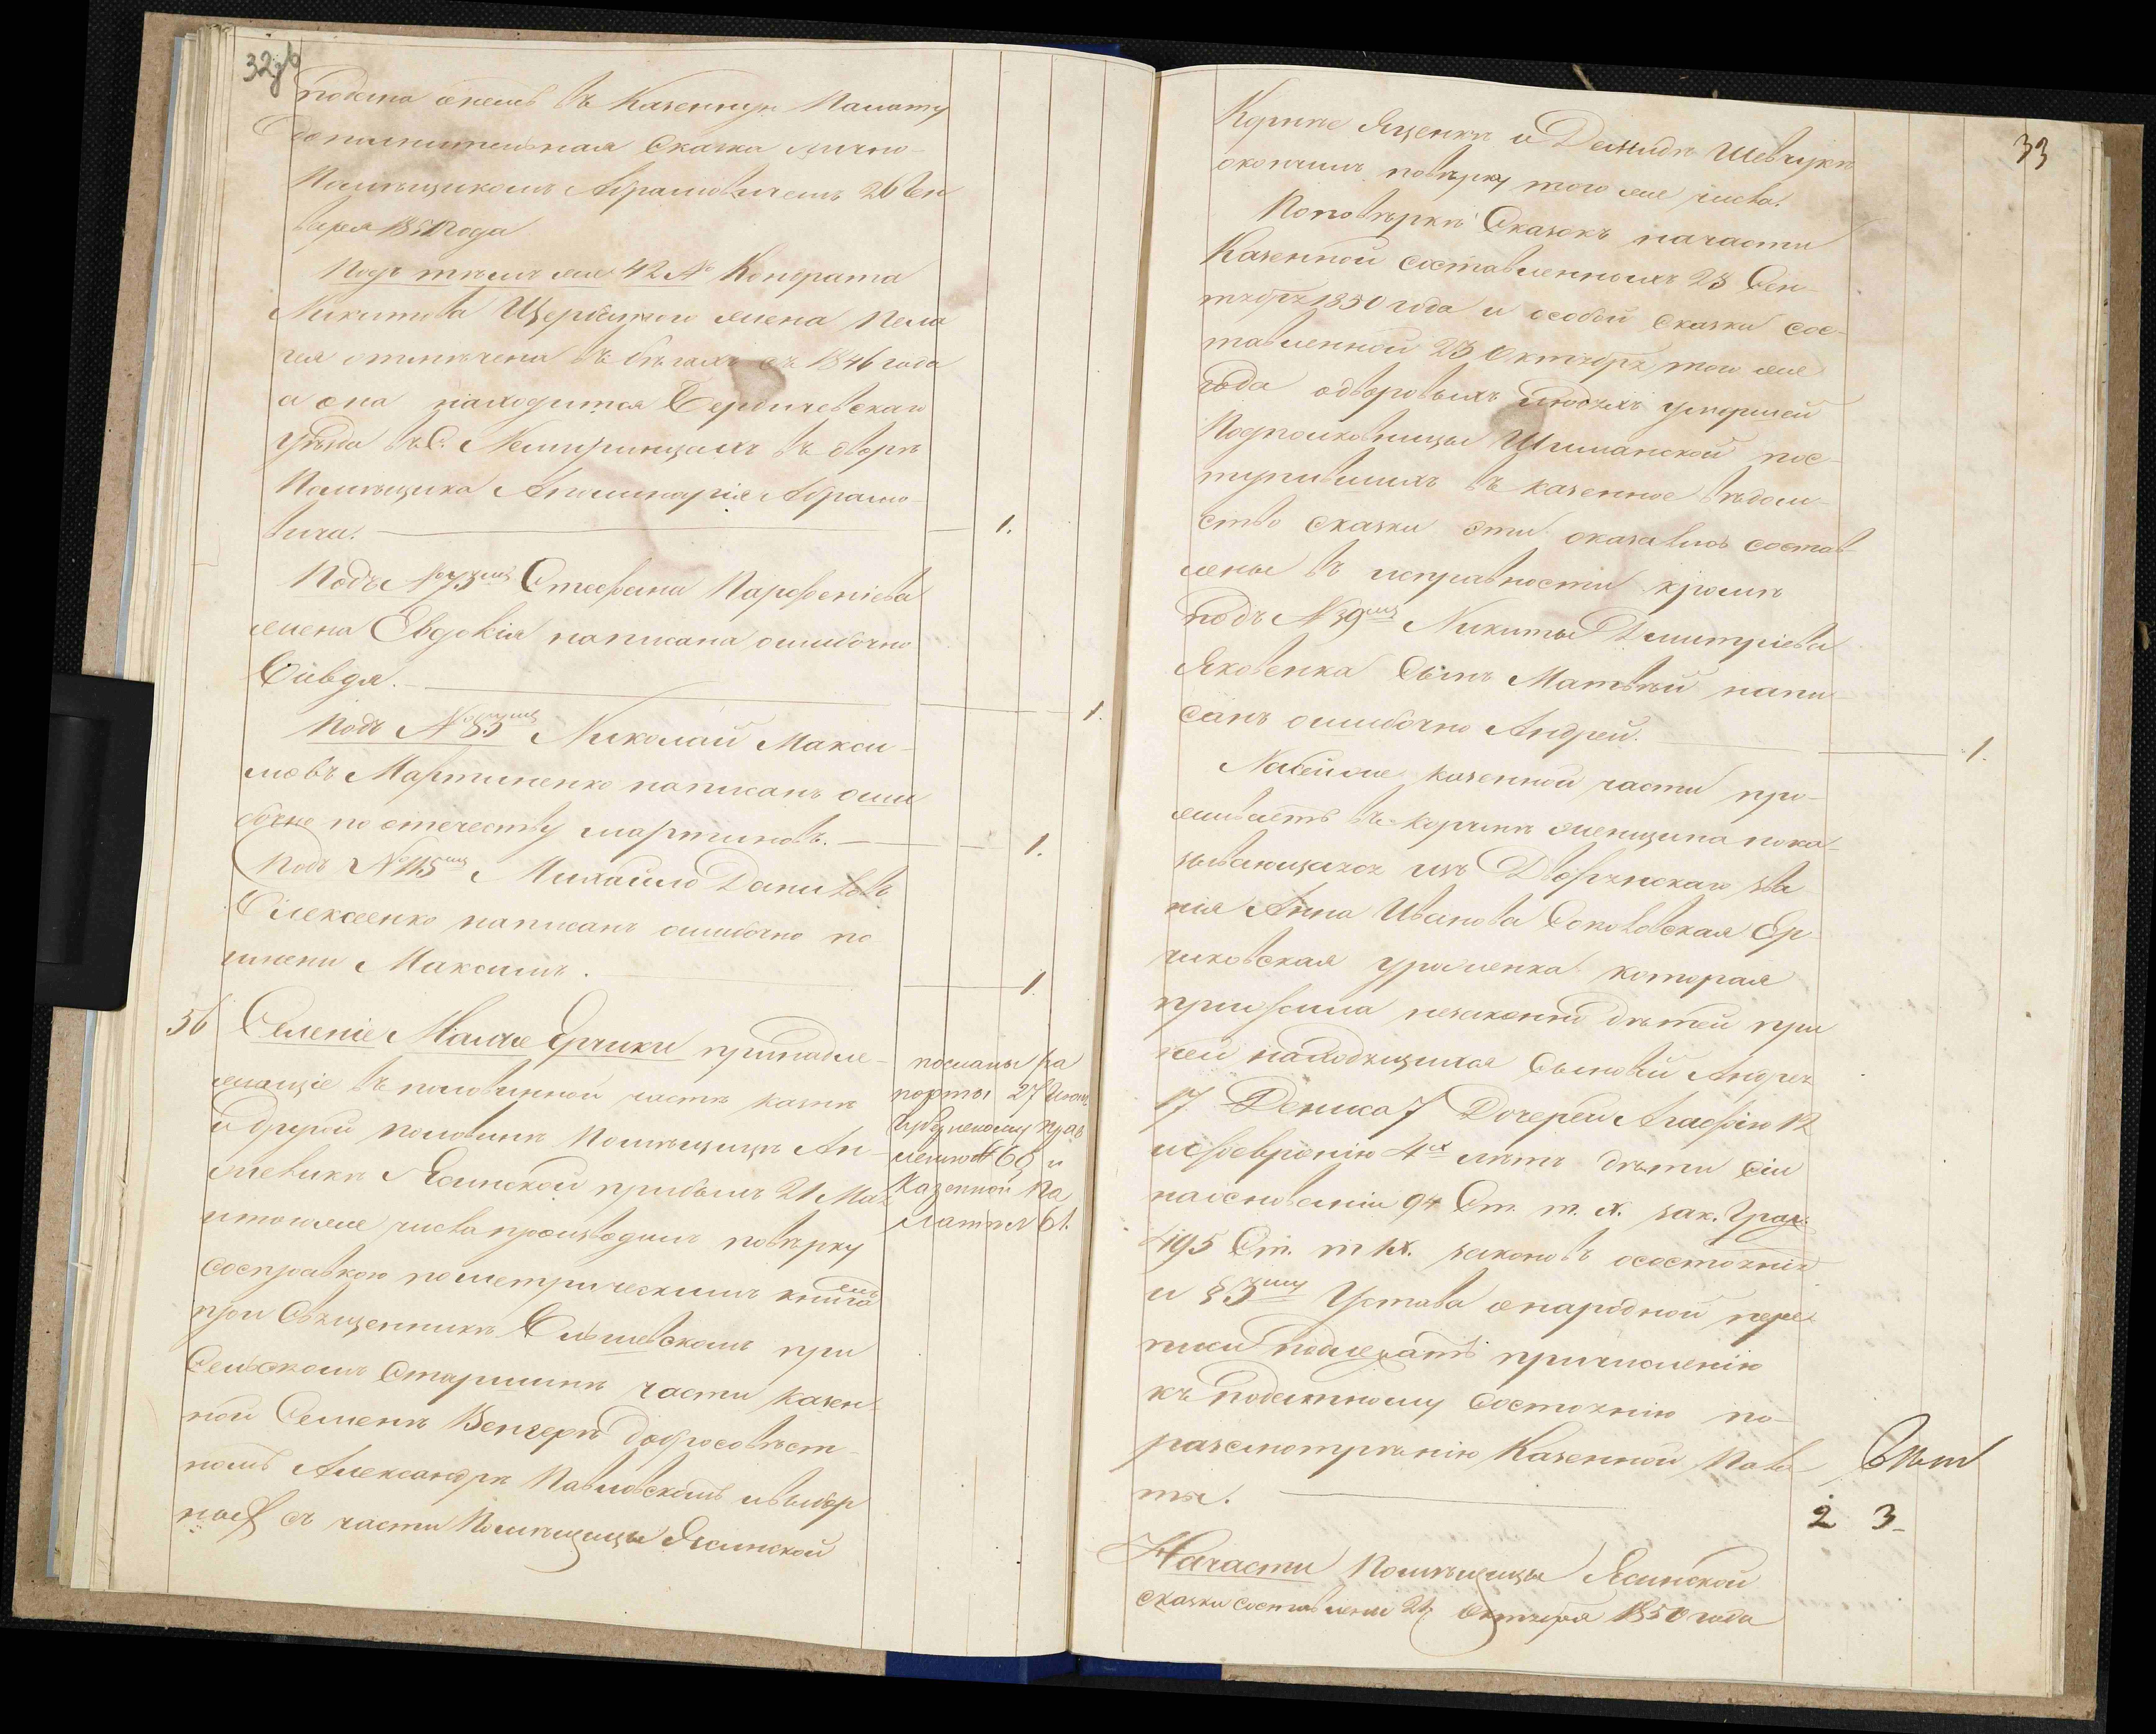 32об
подана онемъ въ Казенную Палату
дополнительная Сказка лично
Помѣщикомъ Абрамовичемъ 26 Ген
варя 1851 года
Подъ тѣмъ же 42 № Кондрата
Никитова Щербатаго жена Пела
гея отмѣчена въ бѣгахъ съ 1846 года
а она находится Бердичевскаго
уѣзда въ С. Немиринцахъ въ дворѣ
Помѣщика Аполинарія Абрамо-
вича. — 1.
Подъ № 75мъ Стефана Парфеніева
жена Евдокія написана ошибочно
— 1.
Подъ № 85мъ Николай Макси-
мовъ Мартиненко написанъ оши
бочно по отечеству мартиновъ. — 1.
Подъ № 115мъ Михайло Даниловъ
Олексеенко написанъ ошибочно по
имени Максимъ. — 1
56 Селеніе Малые Ерчики принадле-
жащіе въ половинной части казнѣ
и другой половинѣ Помѣщицѣ Ан-
Ясинской прибылъ 21 Мая
и того же числа производилъ повѣрку
со справкою по метрическимъ книгамъ
при Священникѣ при
Сельскомъ Старшинѣ части казен-
ной Семенѣ Венгерѣ добросовѣст-
номъ Александрѣ Павловскомъ и выбор
ныхъ съ части Помѣщицы Ясинской
посланы ра
порты 27 Июня
Губернскому прав
ленію № 60 и
Казенной Па
латѣ № 61.
33
Корнѣе Яценкѣ и Демидѣ Шевчукѣ
окончилъ повѣрку того же числа.
По повѣркѣ Сказокъ на части
Казенной составленныхъ 23 Сен-
тября 1850 года и особой сказки сос-
тавленной 23 Октября того же
года о дворовыхъ людяхъ умершей
Подполковницы Шиманской пос-
тупившихъ въ казенное вѣдом-
ство сказки эти оказались состав
лены въ исправности кромѣ
подъ № 39мъ Никиты Дмитріева
Яковенка Сынъ Матвѣй напи
санъ ошибочно Андрей. — 1.
На сей же казенной части про-
живаетъ въ Корчмѣ женщина пока-
зывающаяся изъ Дворянскаго зва
нія Анна Иванова Соколовская Ер-
чиковская уроженка которая
прижила незаконно дѣтей при
ней находящихся Сыновей Андрея
17 Дениса 7 Дочерей Агафію 12
и Февронію 4хъ лѣтъ дѣти сіи
на основаніи 94 Ст. т. X. зак. Граж.
195 Ст. т. IX. законовъ о состояніяхъ
и § 3му Устава о народной пере-
писи подлежатъ причисленію
къ податному состоянію по-
разсмотрѣнію Казенной Пала
ты. — 2 3
На части Помѣщицы Ясинской
сказки составлены 24 Октября 1850 года